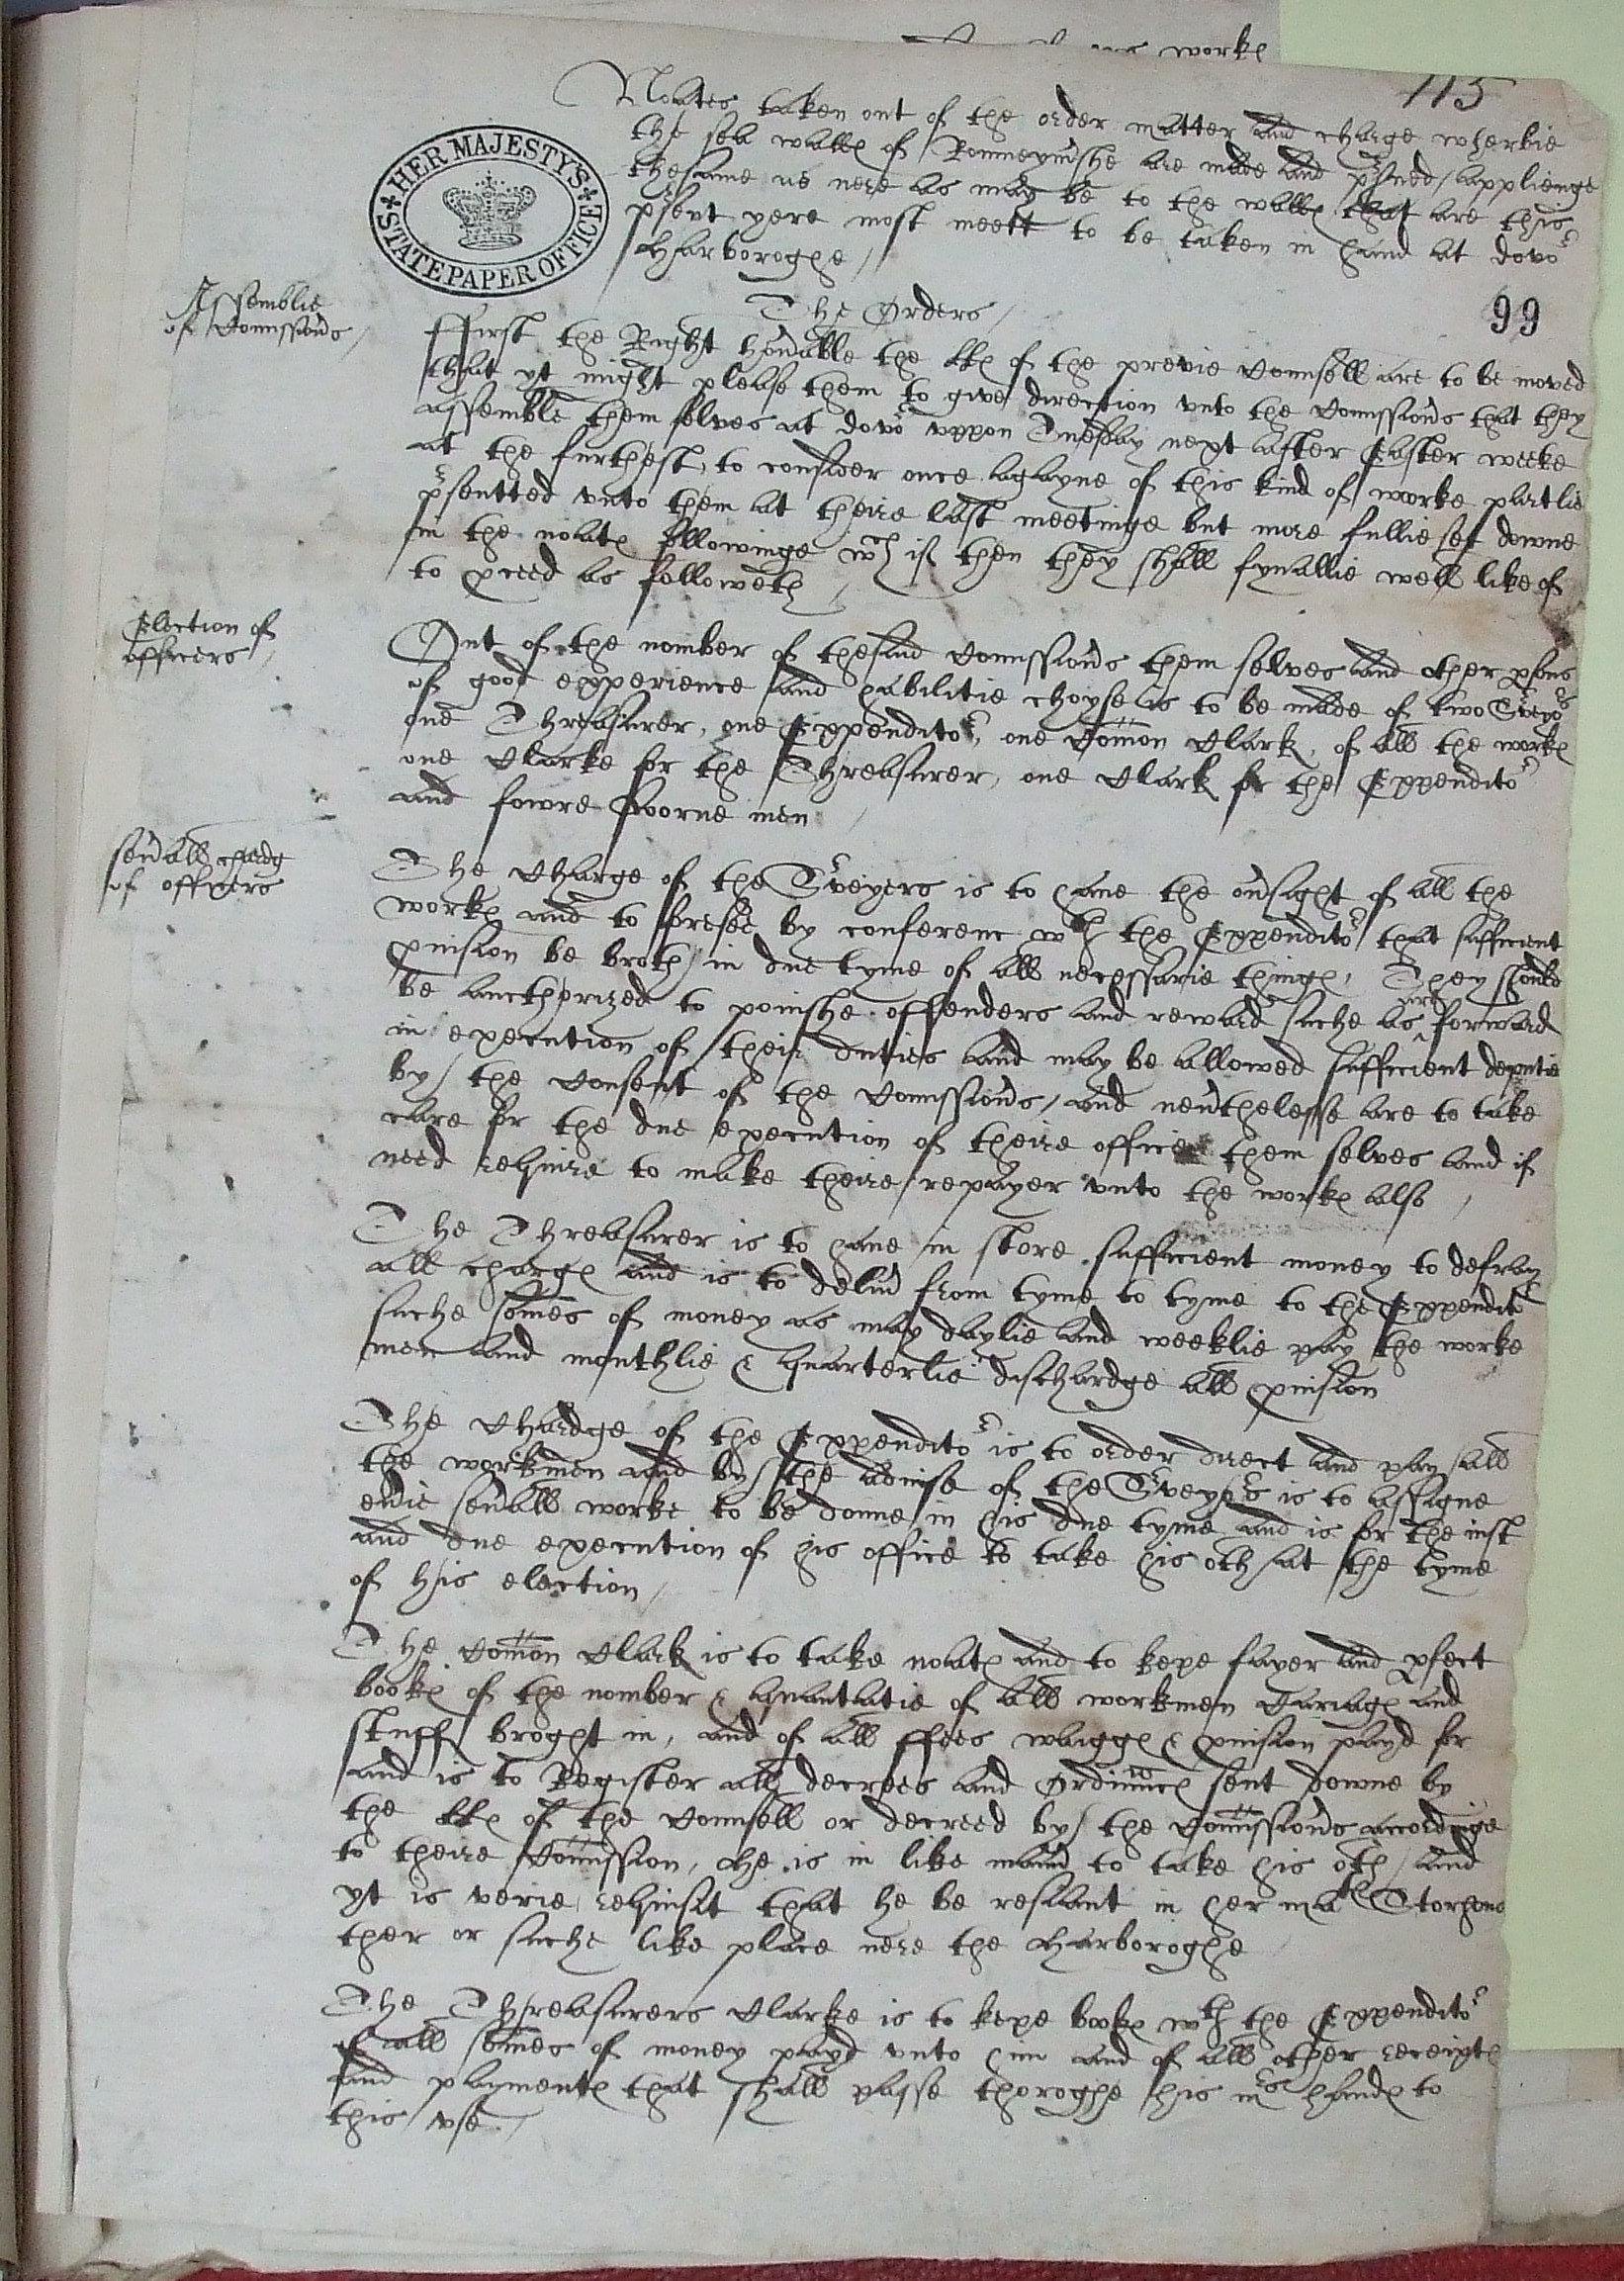 worke
115
Noates taken out of the order matter and charge wherbie
the sea walles of Romneymshe are made and pserved / applienge
thesame as nere as may be to the walles that are this
psent yere most meett to be taken in hand at dovor
Harboroghe /
HER MAJESTY'S
STATE PAPER OFFICE
The Orders /
99
Assemblie
of Comissioners /
Ffirst the Right honorable the LLes of the previe Counsell are to be moved
that yt might please them to give direction vnto the Comissioners that they
assemble them selves at dovor vppon Tuesday next after Easter weeke
at the furthest, to consider once agayne of this kind of worke partlie
psentted vnto them at theire last meetinge but more fullie set downe
in the noates followinge wch if then they shall fynallie well like of
to pceed as followeth /
Election of
officers /
Out of the nomber of thesaid Comissioners them selves and other psons
of good experience and habilitie choyse is to be made of two Sveyors
one Threasurer, one Expenditor, one Comon Clark, of all the workes
one Clarke for the Threasurer, one Clark for the Expenditor
and fowre sworne men /
severall chardg
of officers
The Charge of the Sveyers is to haue the oversight of all the
workes and to foresee by conferenc wth the Expenditor that sufficient
pvision be broth in due tyme of all necessarie thinges, They should
be aucthorized to poinshe offenders and reward suche as are forward
in execution of their duties and may be allowed sufficient deputie
by the Consent of the Comissioners / and neuertheless are to take
care for the due execution of theire offices them selves and if
need require to make theire repayer vnto the workes also /
The Threasurer is to haue in store sufficient money to defray
all charges and is to deliuer from tyme to tyme to the Expenditor
suche somes of money as may daylie and weeklie pay the worke
men and monthlie & quarterlie dischardge all pvision
The Chardge of the Expenditor is to order direct and pay all
the workmen and by the advise of the Sveyors is to assigne
everie severall worke to be donne in his due tyme and is for the iust
and due execution of his office to take his oth at the tyme
of his election /
The Comon Clark is to take noates and to kepe fayer and pfect
bookes of the nomber & quantatie of all workmen Cariages and
stuff broght in, and of all ffees waigges & pvision payd for
and is to Register all decrees and Ordinnces sent downe by
the LLes of the Counsell or decreed by the Comissioners accordinge
to theire Comission, He is in like maner to take his oth / and
yt is verie requisit that he be resiant in her mates Storhous
ther or suche like place nere the Harboroghe
The Threasurers Clarke is to kepe bookes wth the Expenditor
of all somes of money payd vnto him and of all other receiptes
and paymentes that shall passe thoroghe his mrs handes to
this vse /